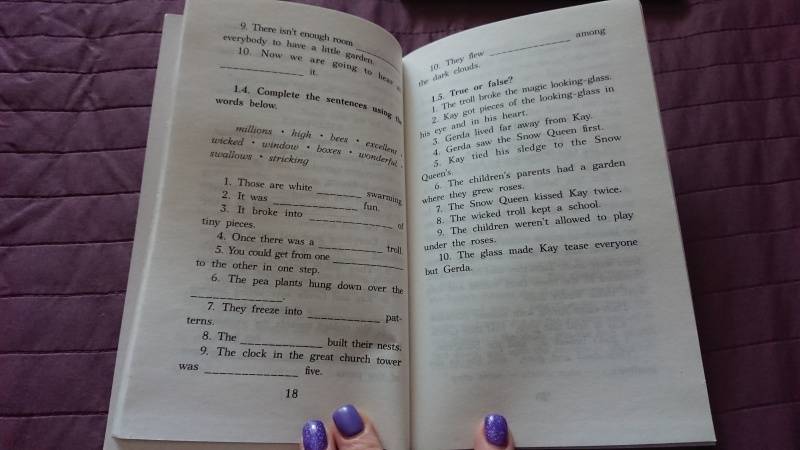 9. There isn't enough room ____________
everybody to have a little garden.
10. Now we are going to hear
____________ it.
1.4. Complete the sentences using the
words below.
millions • high • bees • excellent •
wicked • window • boxes • wonderful •
swallows • stricking
1. Those are white ________ swarming.
2. It was ____________ fun.
3. It broke into ____________ of
tiny pieces.
4. Once there was a ____________ troll.
5. You could get from one ____________
to the other in one step.
6. The pea plants hung down over the
____________.
7. They freeze into ____________ pat-
terns.
8. The ____________ built their nests.
9. The clock in the great church tower
was ____________ five.
18
10. They flew ____________ among
the dark clouds.
1.5. True or false?
1. The troll broke the magic looking-glass.
2. Kay got pieces of the looking-glass in
his eye and in his heart.
3. Gerda lived far away from Kay.
4. Gerda saw the Snow Queen first.
5. Kay tied his sledge to the Snow
Queen's.
6. The children's parents had a garden
where they grew roses.
7. The Snow Queen kissed Kay twice.
8. The wicked troll kept a school.
9. The children weren't allowed to play
under the roses.
10. The glass made Kay tease everyone
but Gerda.